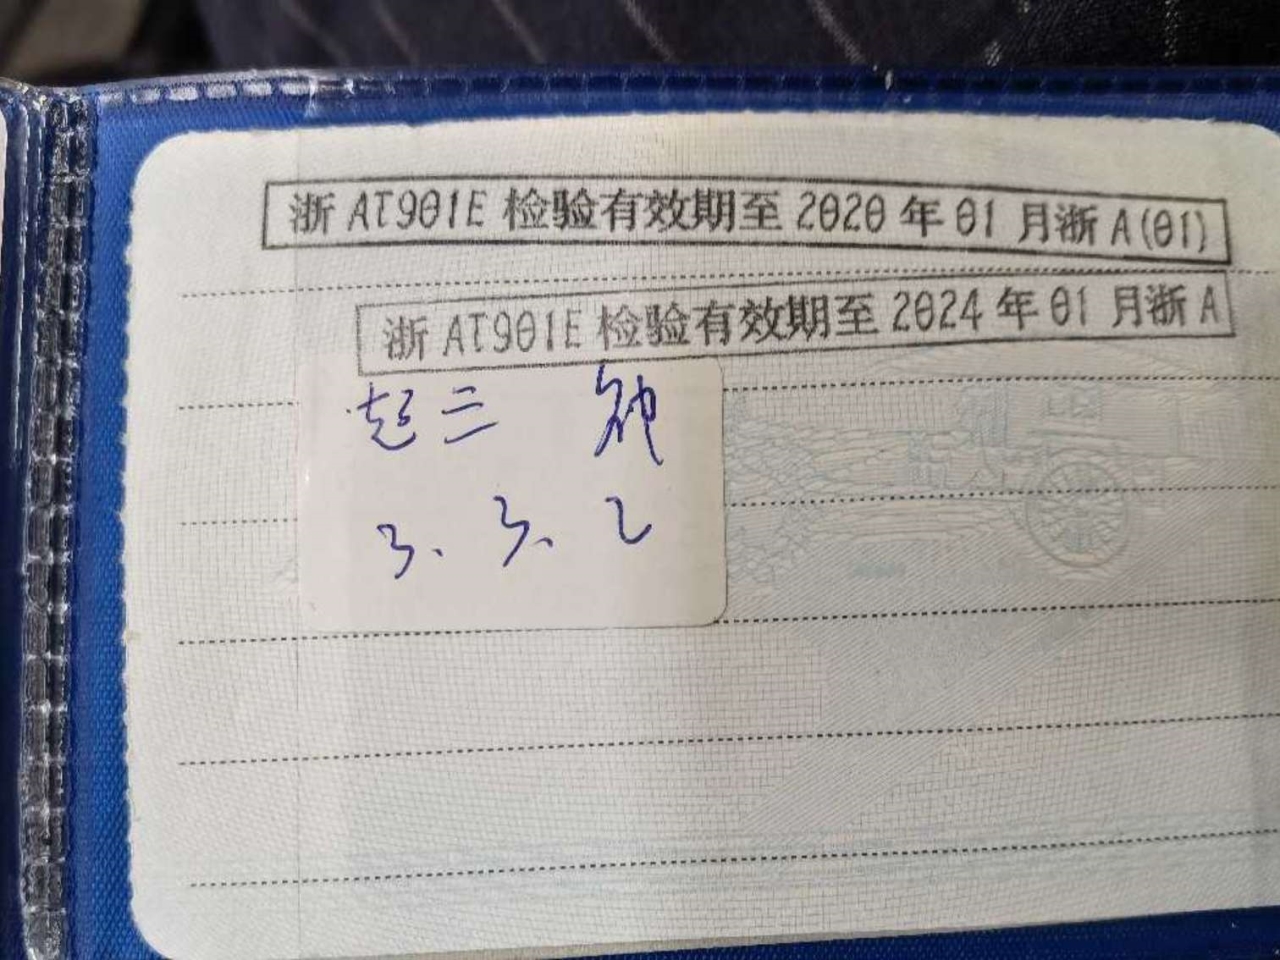 浙AT901E 检验有效期至2020年01月浙A(01)
浙AT901E 检验有效期至2024年01月浙A
超三
3、3、2